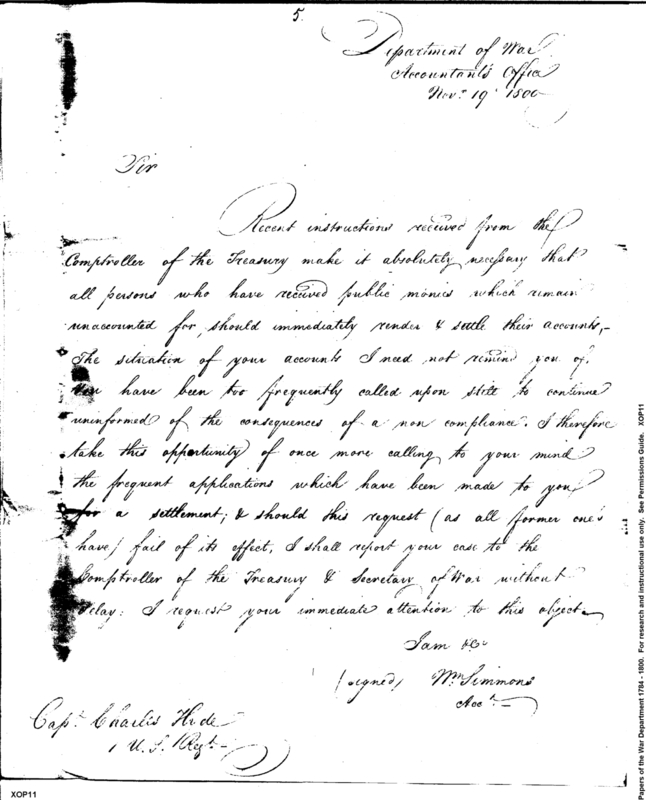 5.
Department of War
Accountants Office
Novr. 19th 1800
Sir
Recent instructions received from the
Comptroller of the Treasury make it absolutely necessary that
all persons who have received public monies which remain
unaccounted for, should immediately render & settle their accounts,—
The situation of your accounts I need not remind you of.
You have been too frequently called upon still to continue
uninformed of the consequences of a non compliance. I therefore
take this opportunity of once more calling to your mind
the frequent applications which have been made to you
for a settlement; & should this request (as all former one's
have) fail of its effect, I shall report your case to the
Comptroller of the Treasury & Secretary of War without
delay: I request your immediate attention to this object.
I am &c
(signed) Wm Simmons
Acct.
Capt. Charles Hyde
1 U.S. Regt.
Papers of the War Department 1784 - 1800. For research and instructional use only. See Permissions Guide. XOP11
XOP11